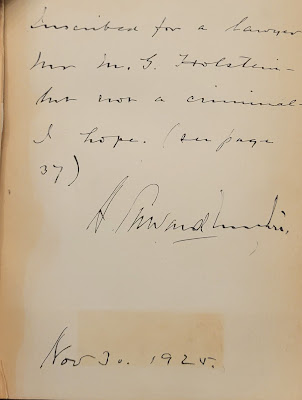 Inscribed for a lawyer
Mr M. G. Holstein -
but not a criminal -
I hope. (see page
37)
Nov 30. 1925.